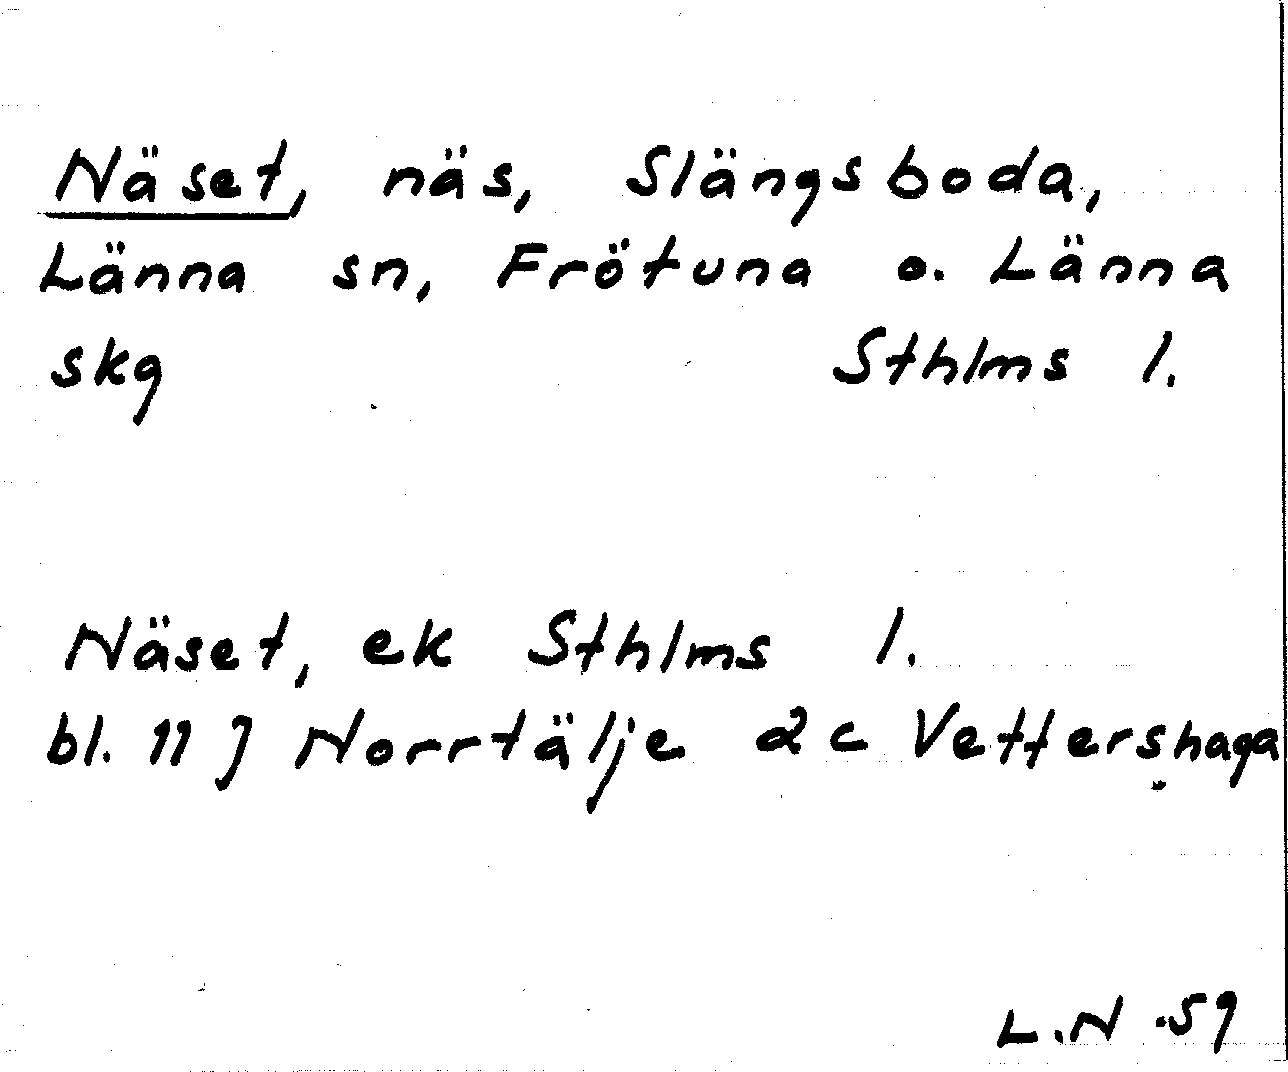 Näset, näs, Slängsboda,
Länna sn, Frötuna o. Länna
skg Sthlms l.
Näset, ek Sthlms l.
bl. 11 J Norrtälje 2c Vettershaga
L.N -59